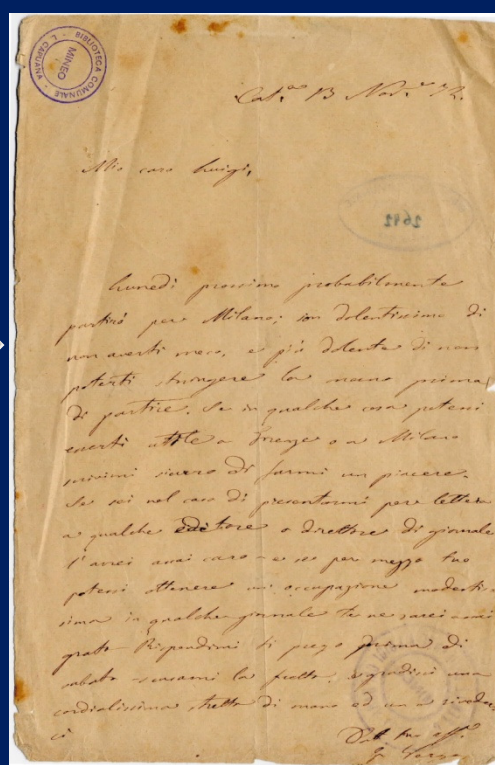 BIBLIOTECA COMUNALE L. CAPUANA
MINEO
Cat.ª 13 Nov.e 72.
Mio caro Luigi,
2642
Lunedì prossimo probabilmente
partirò per Milano; son dolentissimo di
non averti meco, e più dolente di non
poterti stringere la mano prima
di partire. Se in qualche cosa potessi
esserti utile a Firenze o a Milano
scrivimi sicuro di farmi un piacere.
Se sei nel caso di presentarmi per lettera
a qualche editore o direttore di giornale
l'avrei assai caro - e se per mezzo tuo
potessi ottenere un'occupazione modestis-
sima in qualche giornale te ne sarei assai
grato - Rispondimi ti prego prima di
sabato - scusami la fretta, e gradisci una
cordialissima stretta di mano ed un a riveder-
ci
Dal tuo aff.
G. Verga